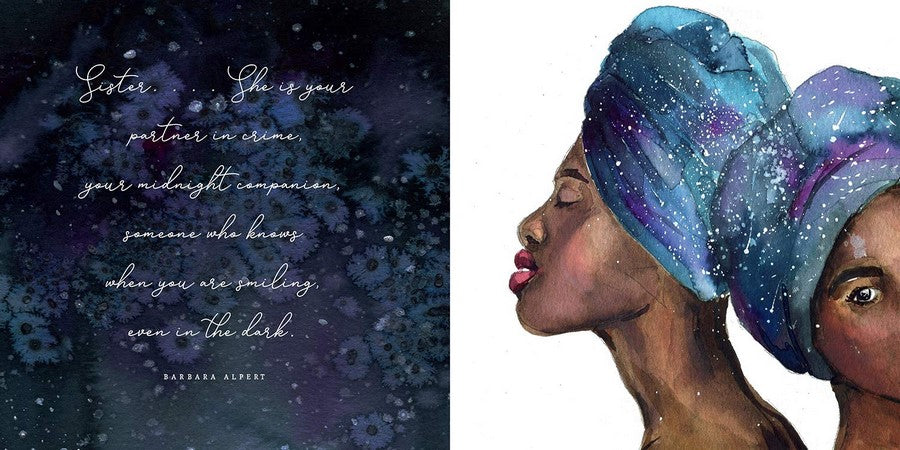 Sister. . . . . She is your
partner in crime,
your midnight companion,
someone who knows
when you are smiling,
even in the dark.
BARBARA ALPERT